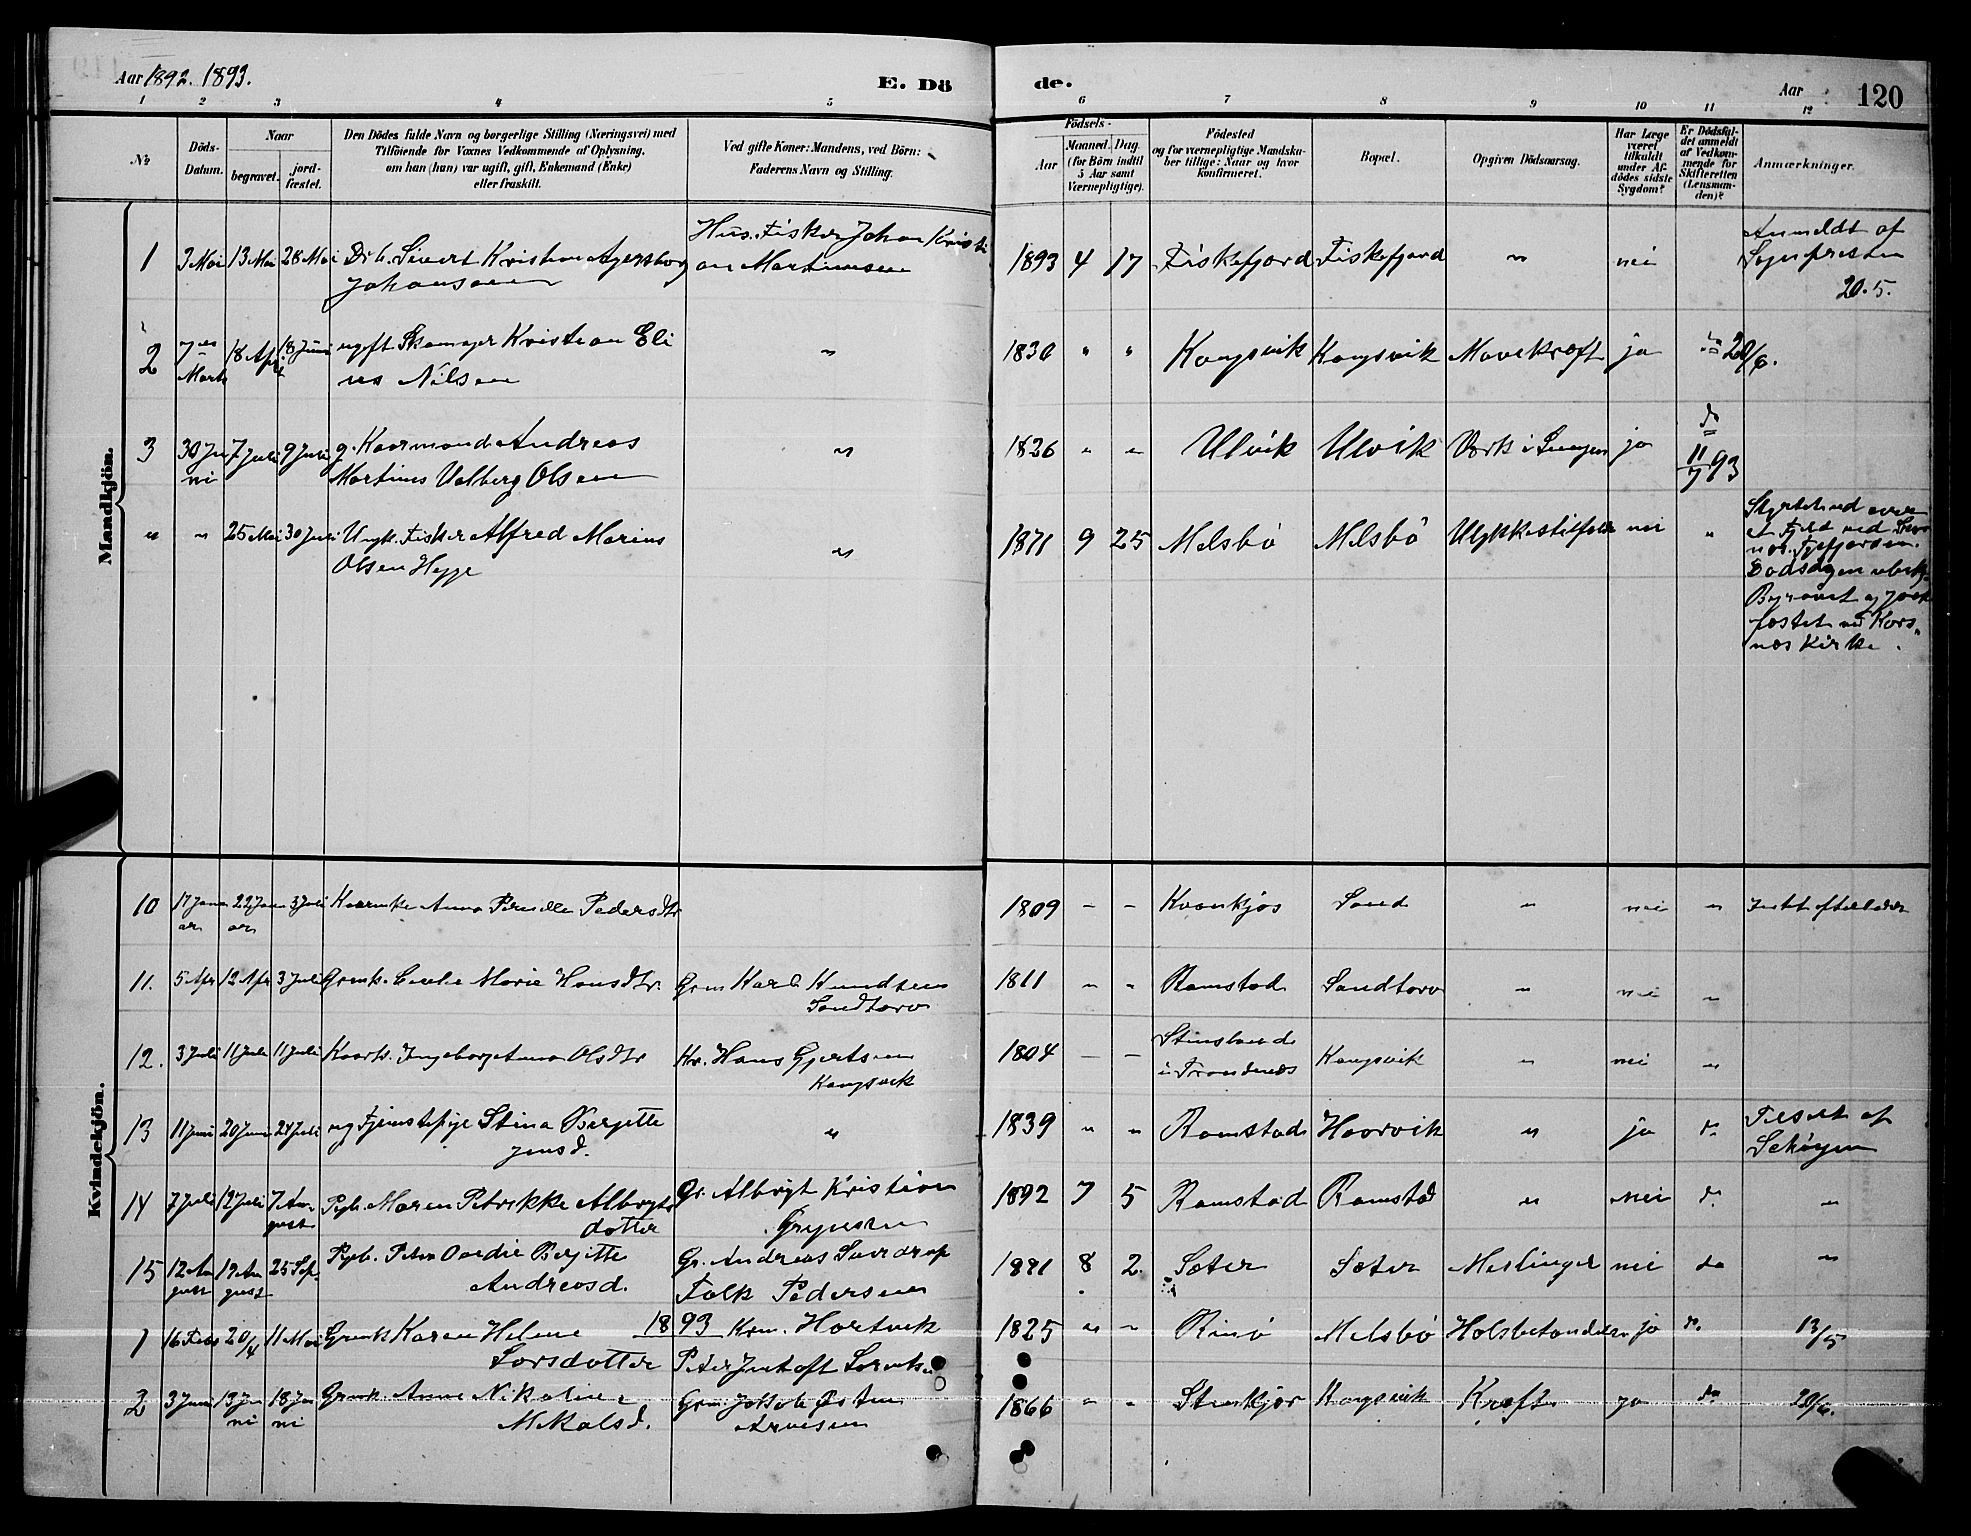 Aar 1892. 1893.
E. Dö
de.
Aar
120
1 2 3 4 5 6 7 8 9 10 11 12
No
Döds-
Datum.
Naar
begravet.
jord-
fæstet.
Den Dödes fulde Navn og borgerlige Stilling (Næringsvei) med
Tilföiende for Voxnes Vedkommende af Oplysning,
om han (hun) var ugift, gift, Enkemand (Enke)
eller fraskilt.
Ved gifte Koner: Mandens, ved Börn:
Faderens Navn og Stilling.
Födsels-
Aar
Maaned. Dag
(for Börn indtil
5 Aar samt
Værnepligtige).
Födested
og for værnepligtige Mandska-
ber tillige: Naar og hvor
konfirmeret.
Bopæl.
Opgiven Dödsaarsag.
Har Læge
været
tilkaldt
under Af-
dödes sidste
Sygdom?
Er Dödsfal-
det anmeldt
af Vedkom-
mende for
Skifteretten
(Lensman-
den)?
Anmærkninger.
Mandkjön.
1 3 Mai 13 Mai 28 Mai Drb. Sivert Kristian
Johansen
Hus. Fisker Johan Kristi
an Martinusen
1893 4 17 Fiskefjord Fiskefjord " nei
Anmeldt af
Sognepresten
20.5.
2 7
Marts
18 Apr 18 Juni ugift Skomager Kristian Eli
us Nilsen
"
1830 " " Kongsvik Kongsvik Mavekræft ja da 20/6.
3 30 Ju
ni
7 Juli 9 Juli g. Kaarmand Andreas
Martinus Valberg Olsen
"
1826 " " Ulvik Ulvik Værk i Lungen ja
da
11/7 93
" " 25 Mai 30 Juli Ungk. Fisker Alfred Marius
Olsen Hegge
"
1871 9 25 Melsbö Melsbö Ulykkestilfælde nei "
Styrtet ud over
et Fjeld ved
Dødsdagen ubek.
Begravet og jord
fæstet ved Kors-
næs Kirke.
Kvindekjön.
10 17 Janu
ar
22 Janu
ar
3 Juli Kaarenke Anna Pernille Pedersdtr
1809 - - Kvankjos Sand " nei " Intet efterladt
11. 5 Apr 12 Apr 3 Juli Grmk. Marie Hansdtr. Grm Karl Knudsen
Sandtorv
1811 " " Ramstad Sandtorv " nei "
12. 3 Juli 11 Juli 11 Juli Kaark. Ingeborg Anna Olsdtr Kr. Hans Gjertsen
Kongsvik
1804 - - Stensland
i Trondenæs
Kongsvik " nei "
13 11 Juni 20 Juni 24 Juli ug Tjenestepige Stina Bergitte
Jensd.
"
1839 " " Ramstad Haarvik " ja da
Tilseet af
14 7 Juli 12 Juli 7 Au-
gust
Pigb. Maren Petrikke Albrigts
dotter
Gr. Albrigt Kristian
1892 7 5 Ramstad Ramstad " nei da "
15 12 Au
gust
19 Au
gust
25 Sep. Pigb. Petra Bergitte
Andreasd.
Gr. Andreas
Falk Pedersen
1881 8 2. Sæter Sæter nei da "
1893
1 16 Febr 20/4 11 Mai Grmk Karen Helene
Larsdotter
Krm. Hartvik
Peter
1825 " " Rinö Melsbö Halsbetændelse ja da 13/5
2 3 Juni 13 Ju
ni
18 Ju
ni
Grmk. Anne Nikoline
Mikalsd.
Grm. Jakob
Arnesen
1866 " " Kongsvik Kræft ja da 20/6.